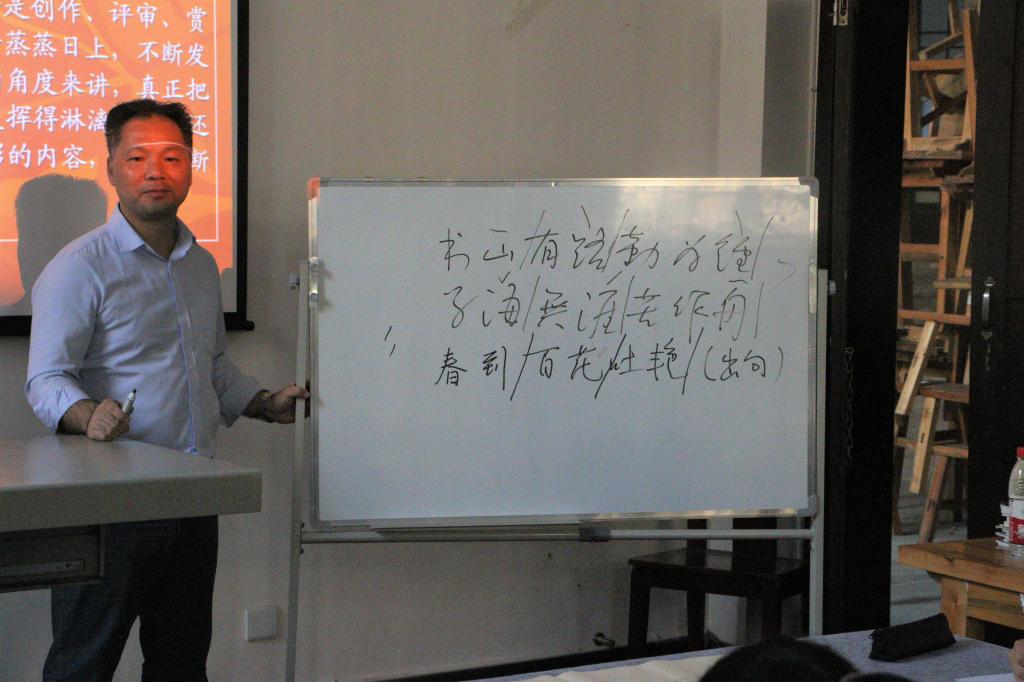 是创作、评审、赏
蒸蒸日上，不断发
角度来讲，真正把
挥得淋漓 还
的内容， 断
书山/有路/勤为径/、
学海/無涯/苦作舟/
春到/百花/吐艳/(出句)